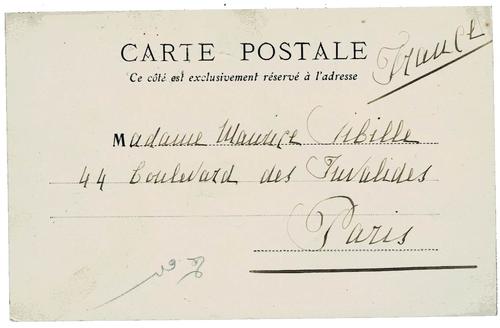 CARTE POSTALE
France
Ce côté est exclusivement réservé à l'adresse
Madame Maurice Sibille
44 Boulevard des Invalides
Paris